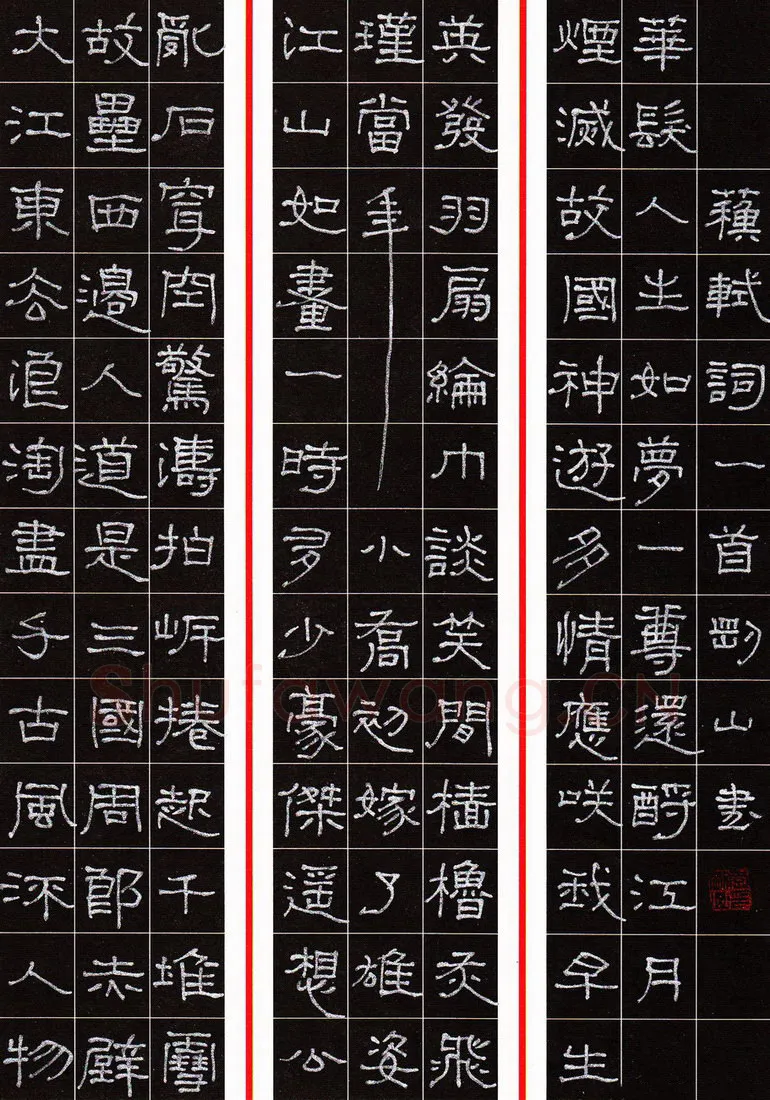 大江東去浪淘盡千古風流人物
故壘西邊人道是三國周郎赤壁
亂石穿空驚濤拍岸捲起千堆雪
江山如畫一時多少豪傑遥想公
瑾當年小喬初嫁了雄姿
英發羽扇綸巾談笑間檣櫓灰飛
煙滅故國神遊多情應咲我早生
華髮人生如夢一尊還酹江月
蘓軾詞一首剛山書
Shufawang.CN